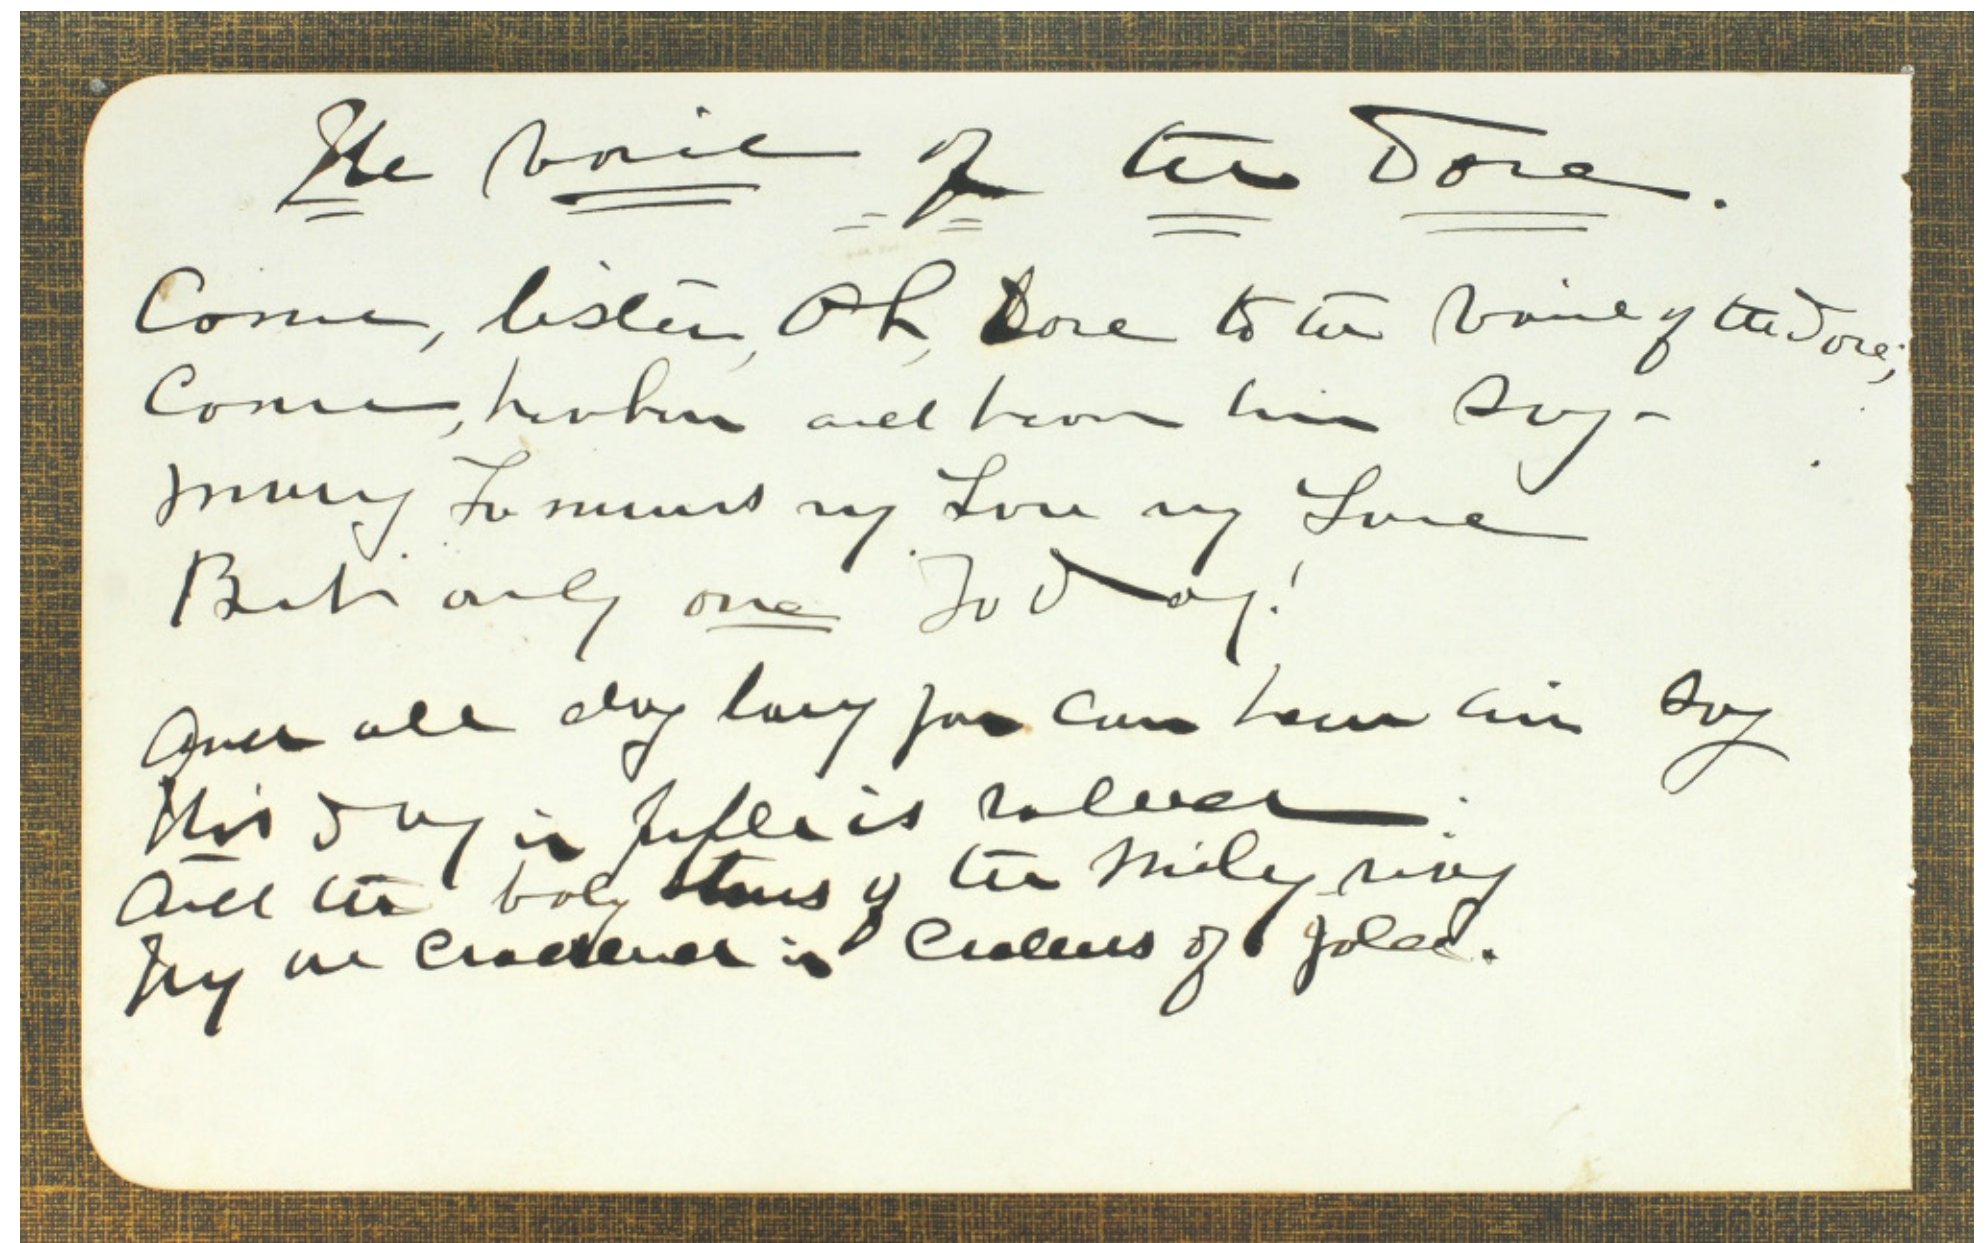 The voice of the Dove.
Come, listen, Oh, Love to the voice of the Dove;
Come, harken and hear him say-
Many To morrows my Love my Love
But only one To Day!
And all day long you can hear him say
This day in purple is rolled
And the baby stars of the milky way
They are cradled in cradles of gold.